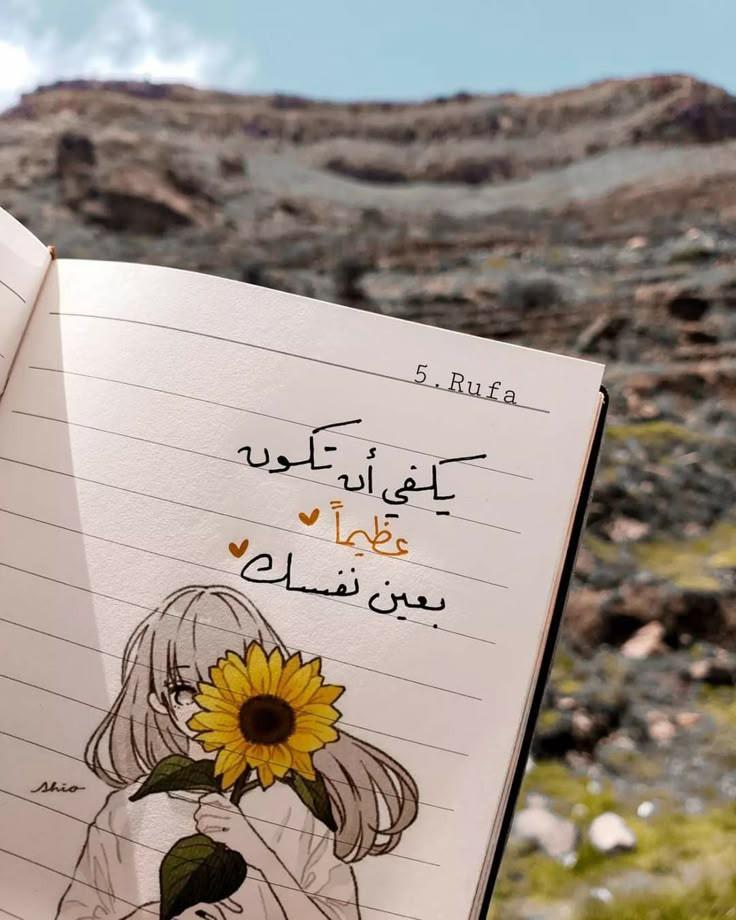 5.Rufa
يكفي أن تكون
عظيماً
بعين نفسك
Shio